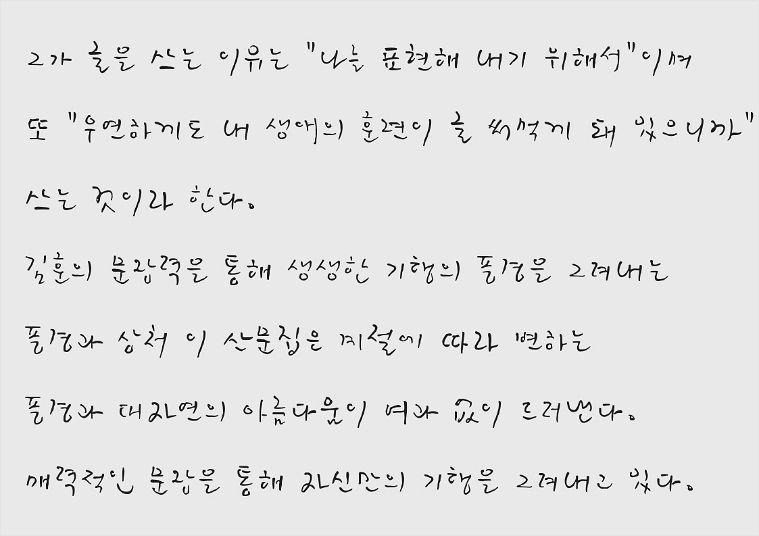 그가 글을 쓰는 이유는 "나를 표현해 내기 위해서"이며
또 "우연하게도 내 생애의 훈련이 글 써먹게 돼 있으니까"
쓰는 것이라 한다.
김훈의 문장력을 통해 생생한 기행의 풍경을 그려내는
풍경과 상처 이 산문집은 계절에 따라 변하는
풍경과 대자연의 아름다움이 여과 없이 드러낸다.
매력적인 문장을 통해 자신만의 기행을 그려내고 있다.